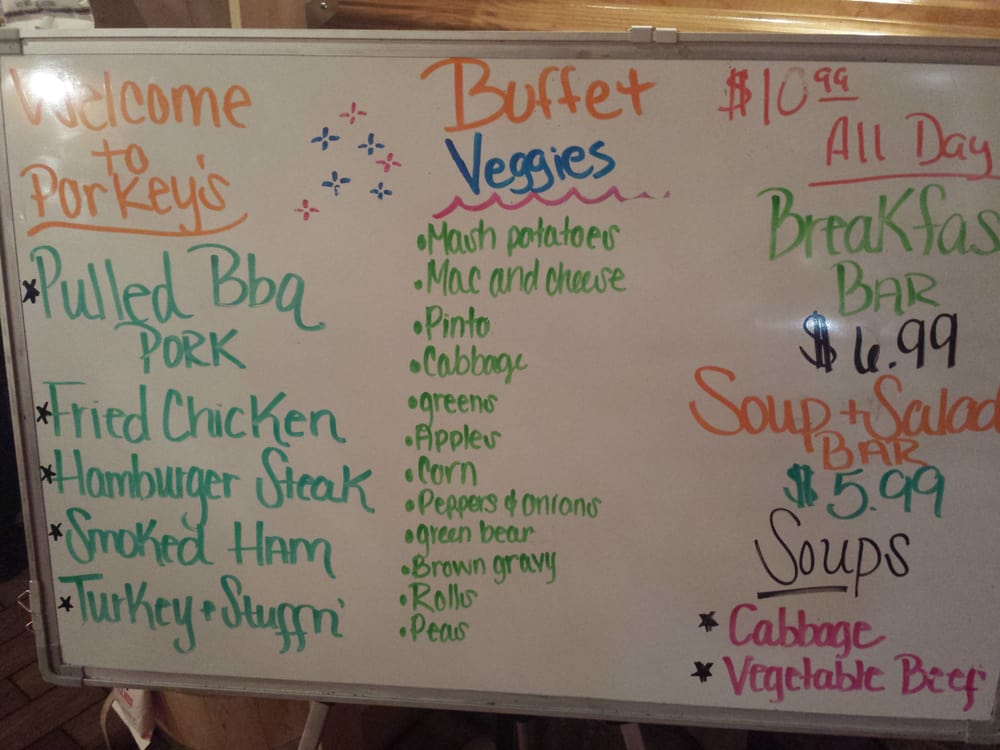 Welcome
to
Porkey's
★Pulled Bbq
PORK
★Fried Chicken
★Hamburger Steak
★Smoked HAM
★Turkey + Stuffn'
Buffet
Veggies
•Mash potatoes
•Mac and cheese
•Pinto
•Cabbage
•greens
•Apples
•Corn
•Peppers & onions
•green bear
•Brown gravy
•Rolls
•Peas
$10 99
All Day
Breakfas
BAR
$6.99
Soup + Salad
BAR
$5.99
Soups
★ Cabbage
★ Vegetable Beef